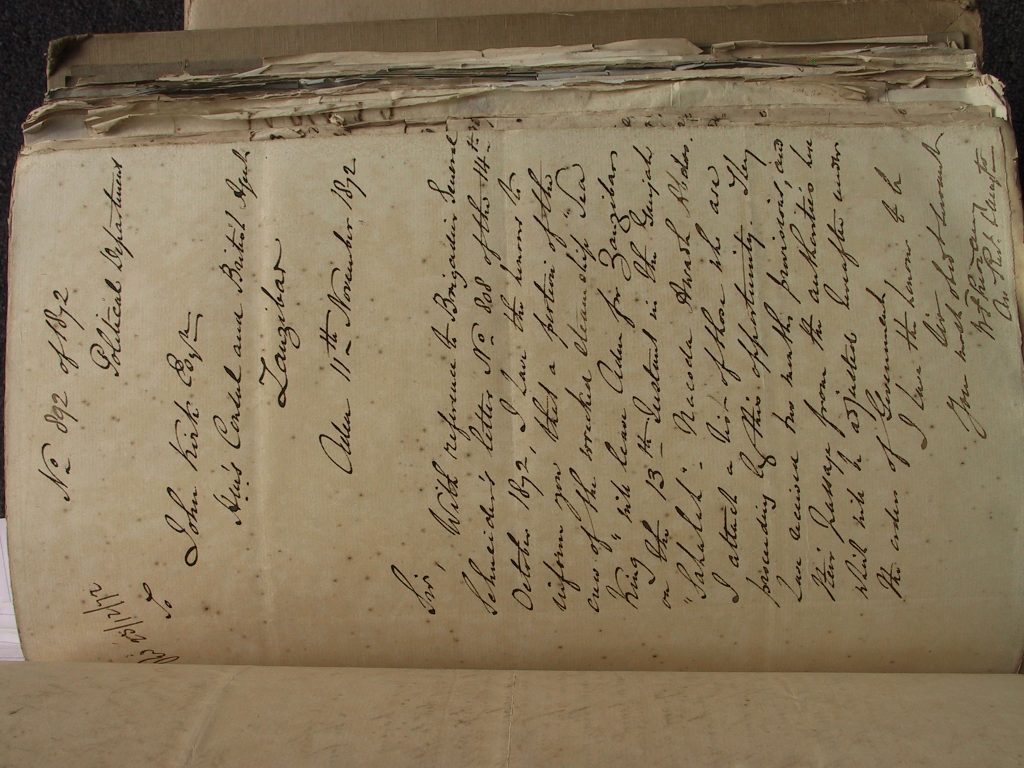 No 892 of 1872
Political Department
25/12/72
To
John Kirk Esqre
H.M's Consul and British Agent
Zanzibar
Aden 11th November 1872
Sir,
With reference to Brigadier General
Schneider's letter No 808 of the 14th
October 1872, I have the honor to
inform you that a portion of the
crew of the wrecked steamship "Sea
King" will leave Aden for Zanzibar
on the 13th Instant in the
"Sahalet" - Nacoda
I attach a list of those who are
proceeding by this opportunity. They
have received two months provisions, and
their passage from the authorities here
which will be adjusted hereafter under
the orders of Government
I have the honor to be
Sir
Your most obdt servant